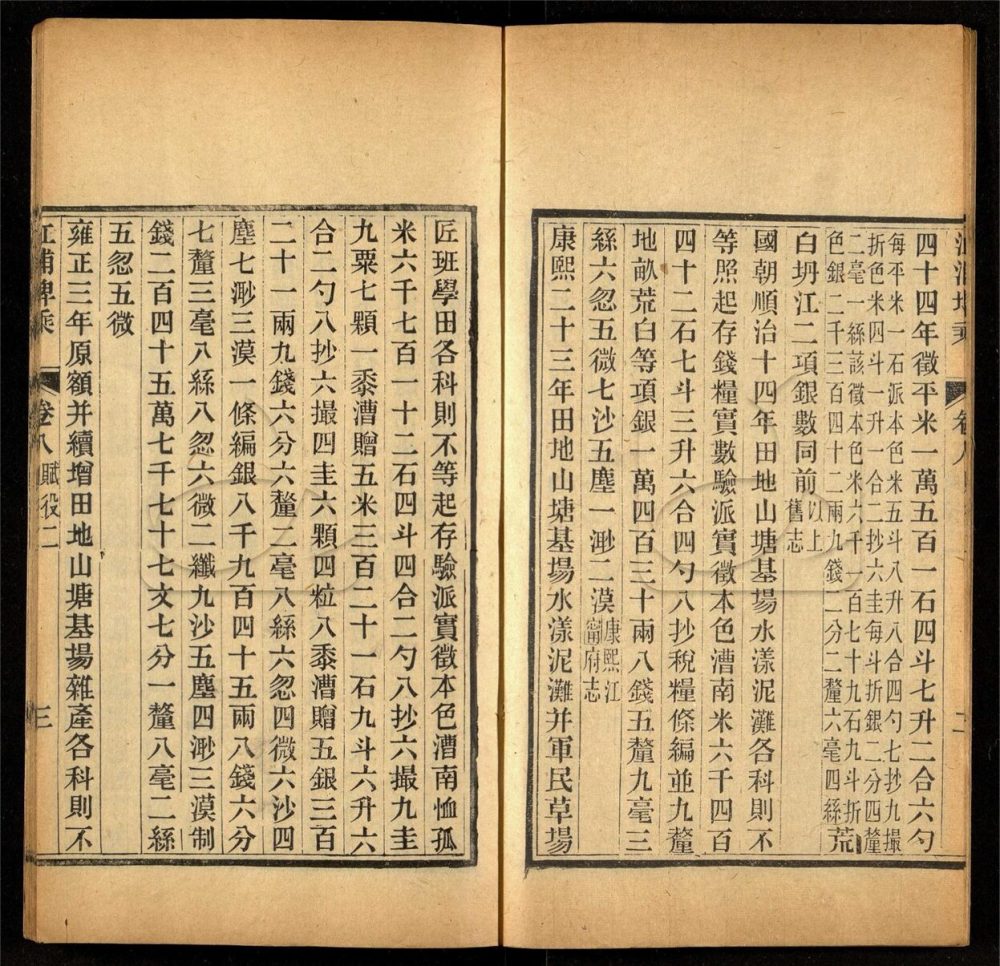 四十四年徵平米一萬五百一石四斗七升二合六勺
每平米一石派本色米五斗八升八合四勺七抄九撮
折色米四斗一升一合二抄六圭每斗折銀二分四釐
二毫一絲該徵本色米六千一百七十九石九斗折
色銀二千三百四十二兩九錢二分二釐六毫四絲荒
白坍江二項銀數同前以上
舊志
國朝順治十四年田地山塘基場水漾泥灘各科則不
等照起存錢糧實數驗派實徵本色漕南米六千四百
四十二石七斗三升六合四勺八抄稅糧條編並九釐
地畝荒白等項銀一萬四百三十兩八錢五釐九毫三
絲六忽五微七沙五塵一渺二漠康熙江
甯府志
康熙二十三年田地山塘基場水漾泥灘并軍民草場
卷八
二
匠班學田各科則不等起存驗派實徵本色漕南恤孤
米六千七百一十二石四斗四合二勺八抄六撮九圭
九粟七顆一黍漕贈五米三百二十一石九斗六升六
合二勺八抄六撮四圭六顆四粒八黍漕贈五銀三百
二十一兩九錢六分六釐二毫八絲六忽四微六沙四
塵七渺三漠一條編銀八千九百四十五兩八錢六分
七釐三毫八絲八忽六微二纖九沙五塵四渺三漠制
錢二百四十五萬七千七十七文七分一釐八毫二絲
五忽五微
雍正三年原額并續增田地山塘基場雜產各科則不
江浦埤乘
卷八賦役二
三